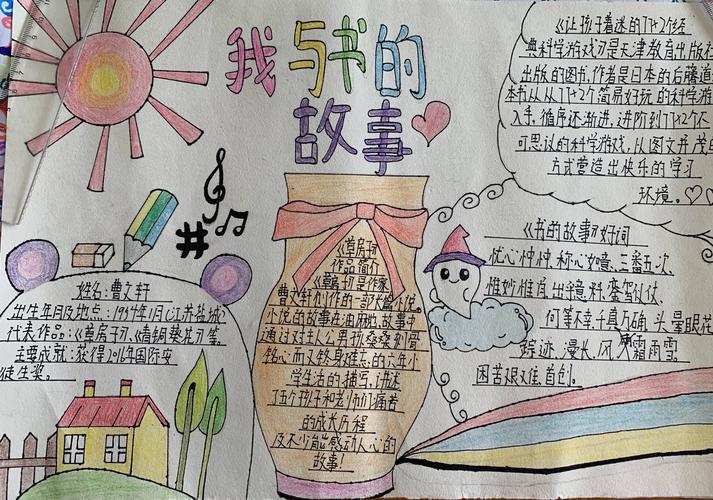 我与书的
故事
《让孩子着迷的77×2经
典科学游戏》是天津教育出版社
出版的图书,作者是日本的后藤道
本书从从77×2个简易好玩的科学游
入手,循序还渐进,进阶到77×2个不
可思议的科学游戏,从图文并茂的
方式营造出快乐的学习
环境。
《草房子》
作品简介
《草房子》是作家
曹文轩创作的一部长篇小说。
小说的故事在油麻地,故事中
通过对主人公男孩桑桑刻骨
铭心而又终身难忘的六年小
学生活的描写,讲述
了五个孩子和老师们痛苦
的成长历程
及不少能感动人心的
故事!
《书的故事》好词
忧心忡忡、称心如意、三番五次、
惟妙惟肖、出乎意料、銮驾仪仗、
何等不幸、千真万确、头晕眼花
踪迹、漫长、风霜雨雪、
困苦艰难、首创。
姓名:曹文轩
出生年月及地点:1954年1月(江苏盐城)
代表作品:《草房子》、《青铜葵花》等。
主要成就:获得2016年国际安
徒生奖。